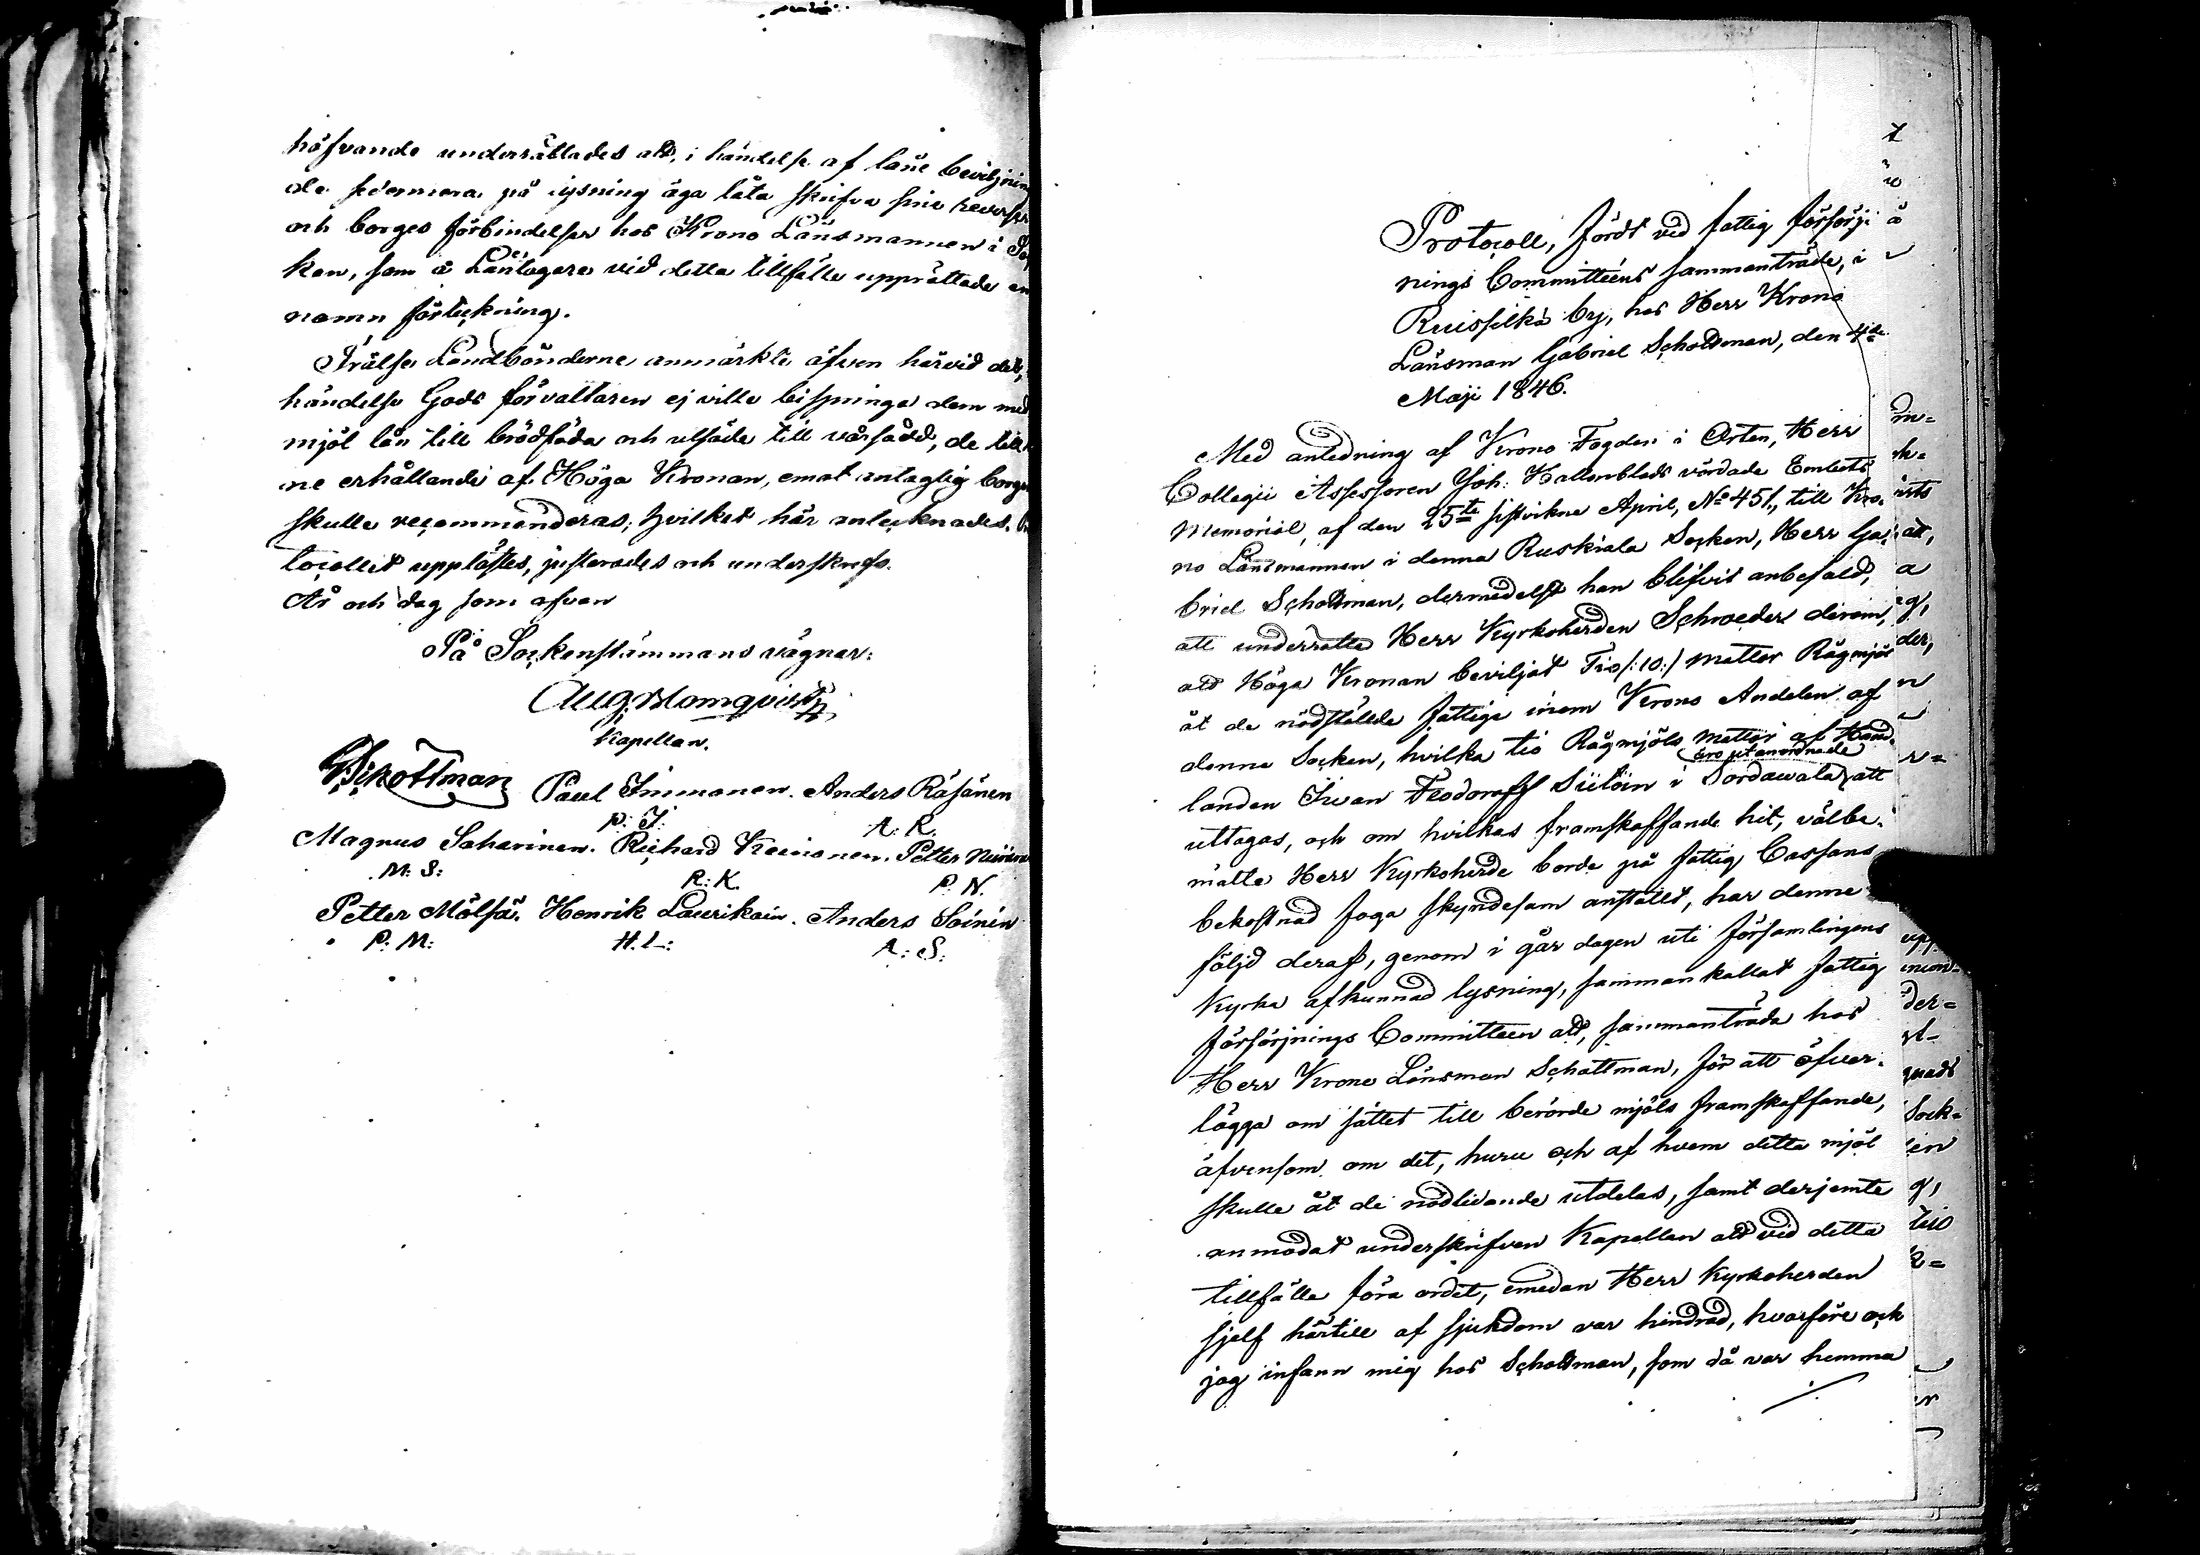 höfvande underrättades att, i händelse af låne beviljnin
de sedermera på lysning äga låta skrifva sine reverser
och borges förbindelser hos Krono Länsmannen i So
ken, som å Låntagare vid detta tillfälle upprättade en
namn förteckning.
Frälse Landbönderne anmärkte äfven härvid att,
händelse Gods förvaltaren ej ville bispringa dem med
mjöl lån till brödföda och utsäde till vårsådd, de till
ne erhållande af Höga Kronan, emot antaglig borgen
skulle recommenderas, hvilket här antecknades.
tocollet upplästes, justerades och underskrefs.
År och dag som ofvan
På Sockenstämmans vägnar:
Aug. Blomqvist
Kapellan.
Schottman Paul Immonen. Anders Räsänen
P: I: A: R.
Magnus Saharinen. Richard Kainonen. Petter
M: S: R: K. P: N.
Petter Mölsä. Henrik Laurikain. Anders Soinin
P: M: H. L: A: S:
Protocoll, fördt vid fattig försörj
nings Committeens sammanträde, i
Ruisselkä by, hos Herr Krono
Länsman Gabriel Schottman, den 4de
Maji 1846.
Med anledning af Krono Fogden i Orten, Herr
Collegii Assessoren Joh: Hallonblads vördade Embets
Memorial, af den 25te sistvikne April, No 451, till Kro-
no Länsmannen i denna Ruskiala Socken, Herr Ga-
briel Schottman, dermedelst han blifvit anbefald,
att underrätta Herr Kyrkoherden Schroeder derom,
att Höga Kronan beviljat Tio /:10:/ mattor Rågmjöl
åt de nödstälde fattige inom Krono Andelen af
denna Socken, hvilka tio Rågmjöls mattor af Hand-
äro utanordnade
landen Iwan Feodoroff Siitoin i Sordawala att
uttagas, och om hvilkas framskaffande hit, välbe-
mälte Herr Kyrkoherde borde på fattig Cassans
bekostnad foga skyndesam anstallt, har denne
följd deraf, genom i går dagen uti församlingens
Kyrka afkunnad lysning, samman kallat fattig
försörjnings Committeen att, sammanträda hos
Herr Krono Länsman Schottman, för att öfver-
lägga om sättet till berörde mjöls framskaffande,
äfvensom om det, huru och af hvem detta mjöl
skulle åt de nödlidande utdelas, samt derjemte
anmodat underskrifven Kapellan att vid detta
tillfälle föra ordet, emedan Herr Kyrkoherden
sjelf härtill af sjukdom var hindrad, hvarföre och
jag infann mig hos Schottman, som då var hemma